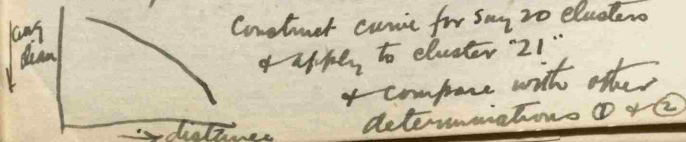 ang
diam
Construct curve for say 20 clusters
& apply to cluster "21"
& compare with other
determinations ① & ②
→ distance